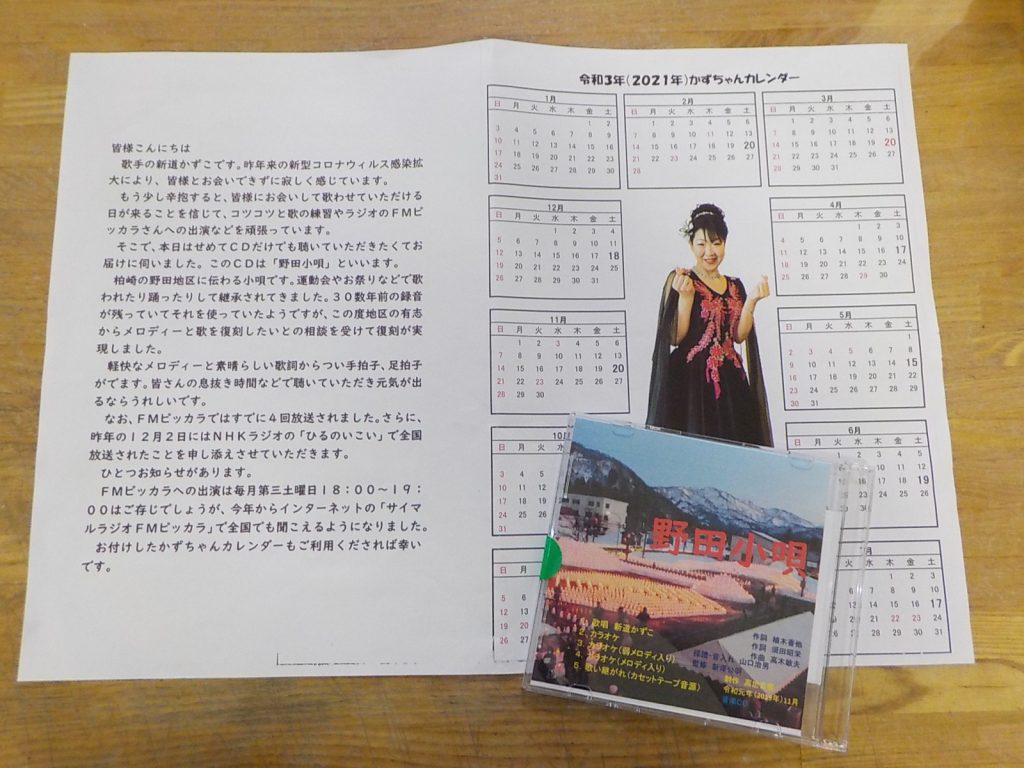 皆様こんにちは
歌手の新道かずこです。昨年来の新型コロナウィルス感染拡
大により、皆様とお会いできずに寂しく感じています。
もう少し辛抱すると、皆様にお会いして歌わせていただける
日が来ることを信じて、コツコツと歌の練習やラジオのＦＭピ
ッカラさんへの出演などを頑張っています。
そこで、本日はせめてＣＤだけでも聴いていただきたくてお
届けに伺いました。このＣＤは「野田小唄」といいます。
柏崎の野田地区に伝わる小唄です。運動会やお祭りなどで歌
われたり踊ったりして継承されてきました。３０数年前の録音
が残っていてそれを使っていたようですが、この度地区の有志
からメロディーと歌を復刻したいとの相談を受けて復刻が実
現しました。
軽快なメロディーと素晴らしい歌詞からつい手拍子、足拍子
がでます。皆さんの息抜き時間などで聴いていただき元気が出
るならうれしいです。
なお、ＦＭピッカラではすでに４回放送されました。さらに、
昨年の１２月２日にはＮＨＫラジオの「ひるのいこい」で全国
放送されたことを申し添えさせていただきます。
ひとつお知らせがあります。
ＦＭピッカラへの出演は毎月第三土曜日１８：００～１９：
００はご存じでしょうが、今年からインターネットの「サイマ
ルラジオＦＭピッカラ」で全国でも聞こえるようになりました。
お付けしたかずちゃんカレンダーもご利用くだされば幸い
です。
令和3年(2021年)かずちゃんカレンダー
1月
日 月 火 水 木 金 土
1 2
3 4 5 6 7 8 9
10 11 12 13 14 15 16
17 18 19 20 21 22 23
24 25 26 27 28 29 30
31
2月
日 月 火 水 木 金 土
1 2 3 4 5 6
7 8 9 10 11 12 13
14 15 16 17 18 19 20
21 22 23 24 25 26 27
28
3月
日 月 火 水 木 金 土
1 2 3 4 5 6
7 8 9 10 11 12 13
14 15 16 17 18 19 20
21 22 23 24 25 26 27
28 29 30 31
12月
日 月 火 水 木 金 土
1 2 3 4
5 6 7 8 9 10 11
12 13 14 15 16 17 18
19 20 21 22 23 24 25
26 27 28 29 30 31
4月
日 月 火 水 木 金 土
1 2 3
4 5 6 7 8 9 10
11 12 13 14 15 16 17
18 19 20 21 22 23 24
25 26 27 28 29 30
11月
日 月 火 水 木 金 土
1 2 3 4 5 6
7 8 9 10 11 12 13
14 15 16 17 18 19 20
21 22 23 24 25 26 27
28 29 30
5月
日 月 火 水 木 金 土
1
2 3 4 5 6 7 8
9 10 11 12 13 14 15
16 17 18 19 20 21 22
23 24 25 26 27 28 29
30 31
10月
日 月 火
3 4
10 11
17 18
24 25
31
6月
日 月 火 水 木 金 土
1 2 3 4 5
9 10 11 12
16 17 18 19
23 24 25 26
30
日 月
5 6
12 13
19 20
26 27
月
火 水 木 金 土
1 2 3
7 8 9 10
14 15 16 17
21 22 23 24
28 29 30 31
野田小唄
1. 歌唱 新道かずこ
2. カラオケ
3. カラオケ(弱メロディ入り)
4. カラオケ(メロディ入り)
5. 歌い継がれ(カセットテープ音源)
作詞 植木喜他
作詞 須田昭栄
作曲 高木敏夫
採譜・音入れ 山口浩男
監修
制作
令和元年(2019年)11月
音楽CD